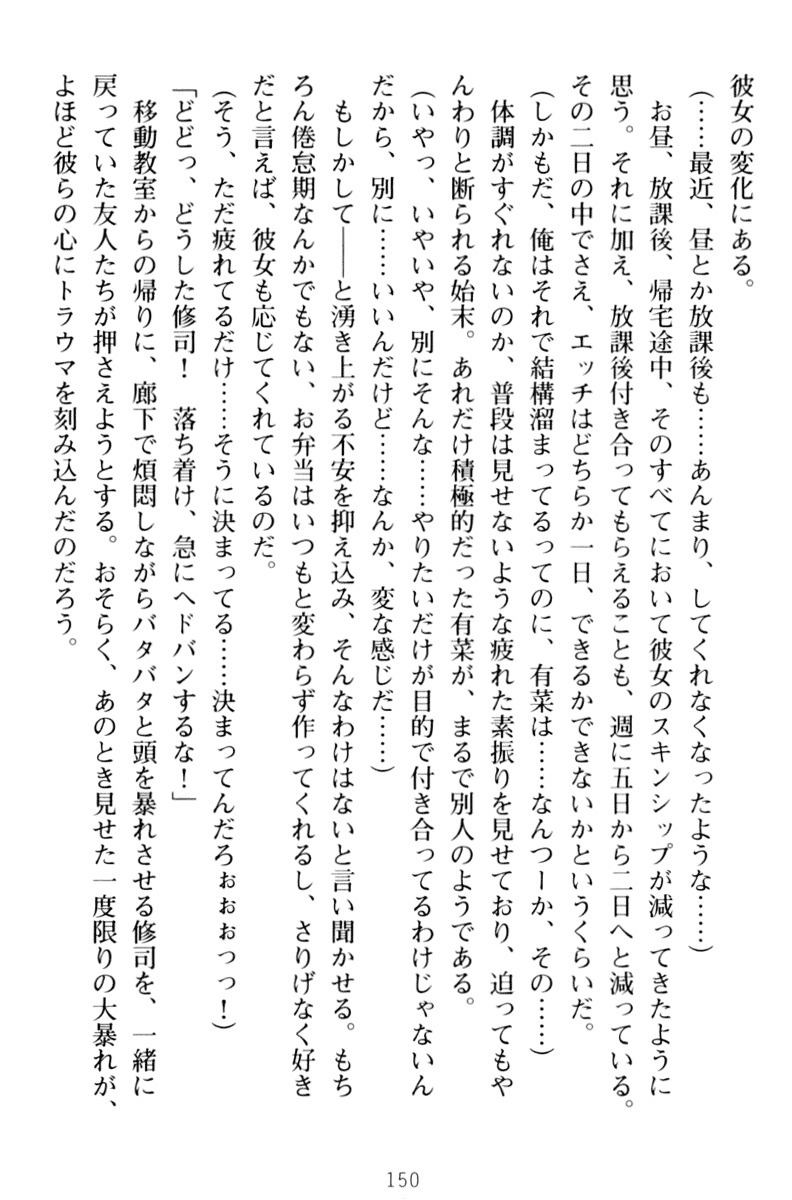 彼女の変化にある。
（……最近、昼とか放課後も……あんまり、してくれなくなったような……）
お昼、放課後、帰宅途中、そのすべてにおいて彼女のスキンシップが減ってきたように
思う。それに加え、放課後付き合ってもらえることも、週に五日から二日へと減っている。
その二日の中でさえ、エッチはどちらか一日、できるかできないかというくらいだ。
（しかもだ、俺はそれで結構溜まってるってのに、有菜は……なんつーか、その……）
体調がすぐれないのか、普段は見せないような疲れた素振りを見せており、迫ってもや
んわりと断られる始末。あれだけ積極的だった有菜が、まるで別人のようである。
（いやっ、いやいや、別にそんな……やりたいだけが目的で付き合ってるわけじゃないん
だから、別に……いいんだけど……なんか、変な感じだ……）
もしかして――と湧き上がる不安を抑え込み、そんなわけはないと言い聞かせる。もち
ろん倦怠期なんかでもない、お弁当はいつもと変わらず作ってくれるし、さりげなく好き
だと言えば、彼女も応じてくれているのだ。
（そう、ただ疲れてるだけ……そうに決まってる……決まってんだろぉぉぉっっ！）
「どどっ、どうした修司！　落ち着け、急にヘドバンするな！」
移動教室からの帰りに、廊下で煩悶しながらバタバタと頭を暴れさせる修司を、一緒に
戻っていた友人たちが押さえようとする。おそらく、あのとき見せた一度限りの大暴れが、
よほど彼らの心にトラウマを刻み込んだのだろう。
150